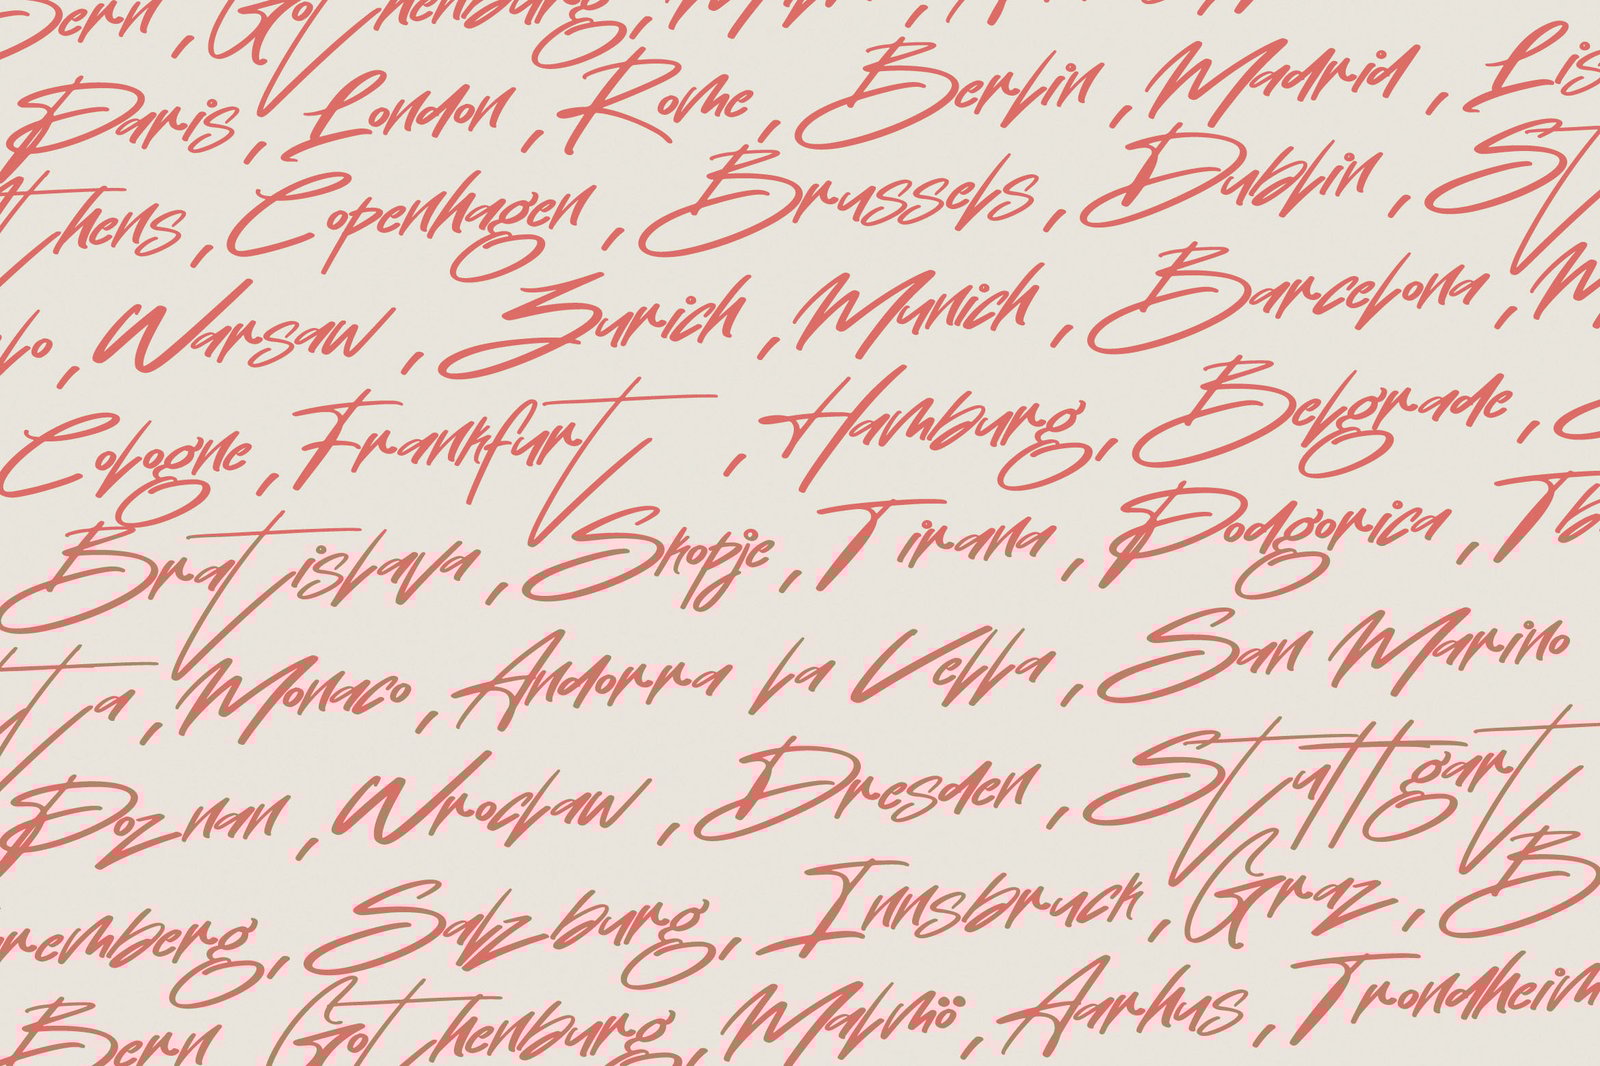 Bern, Gothenburg,
Paris, London, Rome, Berlin, Madrid, Lis
thens, Copenhagen, Brussels, Dublin, St
lo, Warsaw, Zurich, Munich, Barcelona, M
Cologne, Frankfurt, Hamburg, Belgrade, S
Bratislava, Skopje, Tirana, Podgorica, Tb
ta, Monaco, Andorra la Vella, San Marino
Poznan, Wroclaw, Dresden, Stuttgart
remberg, Salzburg, Innsbruck, Graz, B
Bern, Gothenburg, Malmö, Aarhus, Trondheim